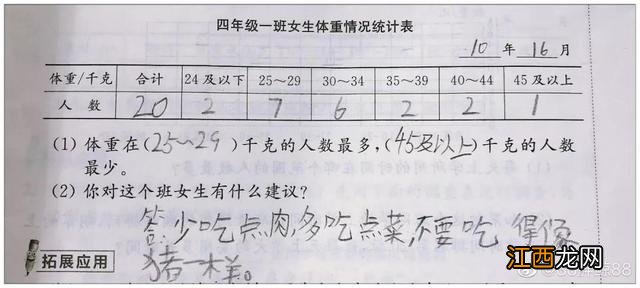 四年级一班女生体重情况统计表
10 年 16 月
体重/千克 合计 24及以下 25~29 30~34 35~39 40~44 45及以上
人数 20 2 7 6 2 2 1
(1) 体重在(25~29)千克的人数最多,(45及以上)千克的人数
最少。
(2) 你对这个班女生有什么建议?
答:少吃点肉,多吃点菜,不要吃得像
猪一样。
拓展应用
西西龙网